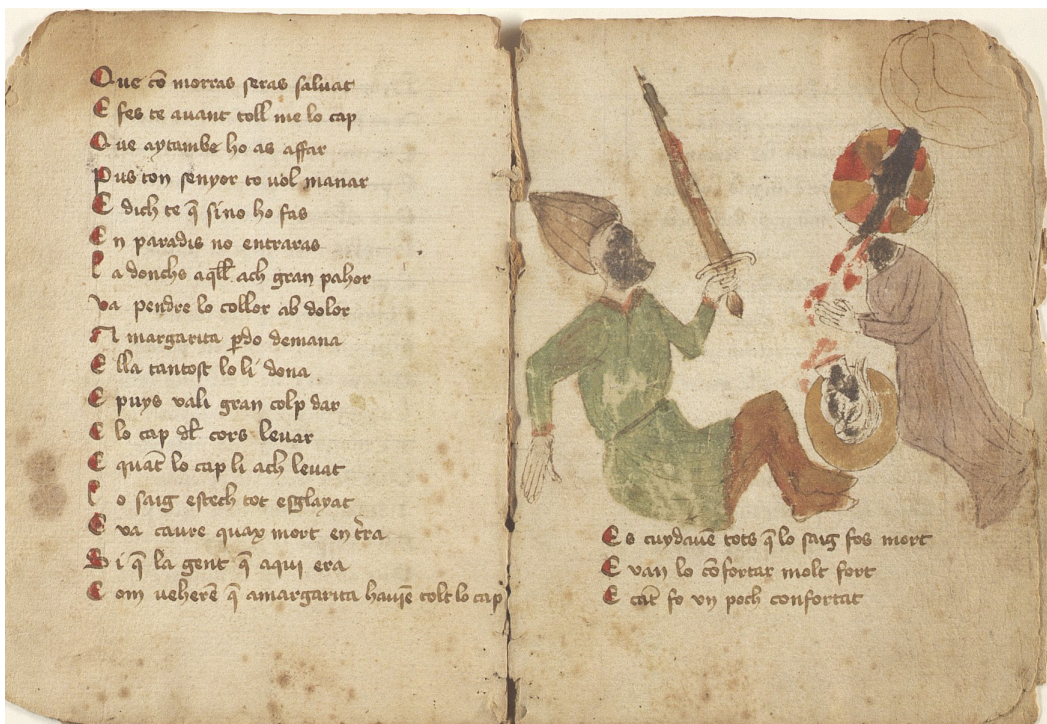 Que cō morras seras saluat
E fes te auant toll me lo cap
Que aytambe ho as affar
Pus ton senyor to vol manar
E dich te q̄ sino ho fas
En paradis no entraras
La donchs aq̄ll ach gran pahor
Va pendre lo coltor ab dolor
A margarita ꝑdo demana
Ella tantost lo li dona
E puys vali gran colp dar
E lo cap dl̄ cors leuar
E quāt lo cap li ach leuat
Lo saig estech tot esglayat
E va caure quax mort en tr̄a
Si q̄ la gent q̄ aqui era
Com veherē q̄ amargarita hauiē tolt lo cap
Es cuydauē tots q̄ lo saig fos mort
E van lo cōfortar molt fort
E cāt fo vn poch confortat